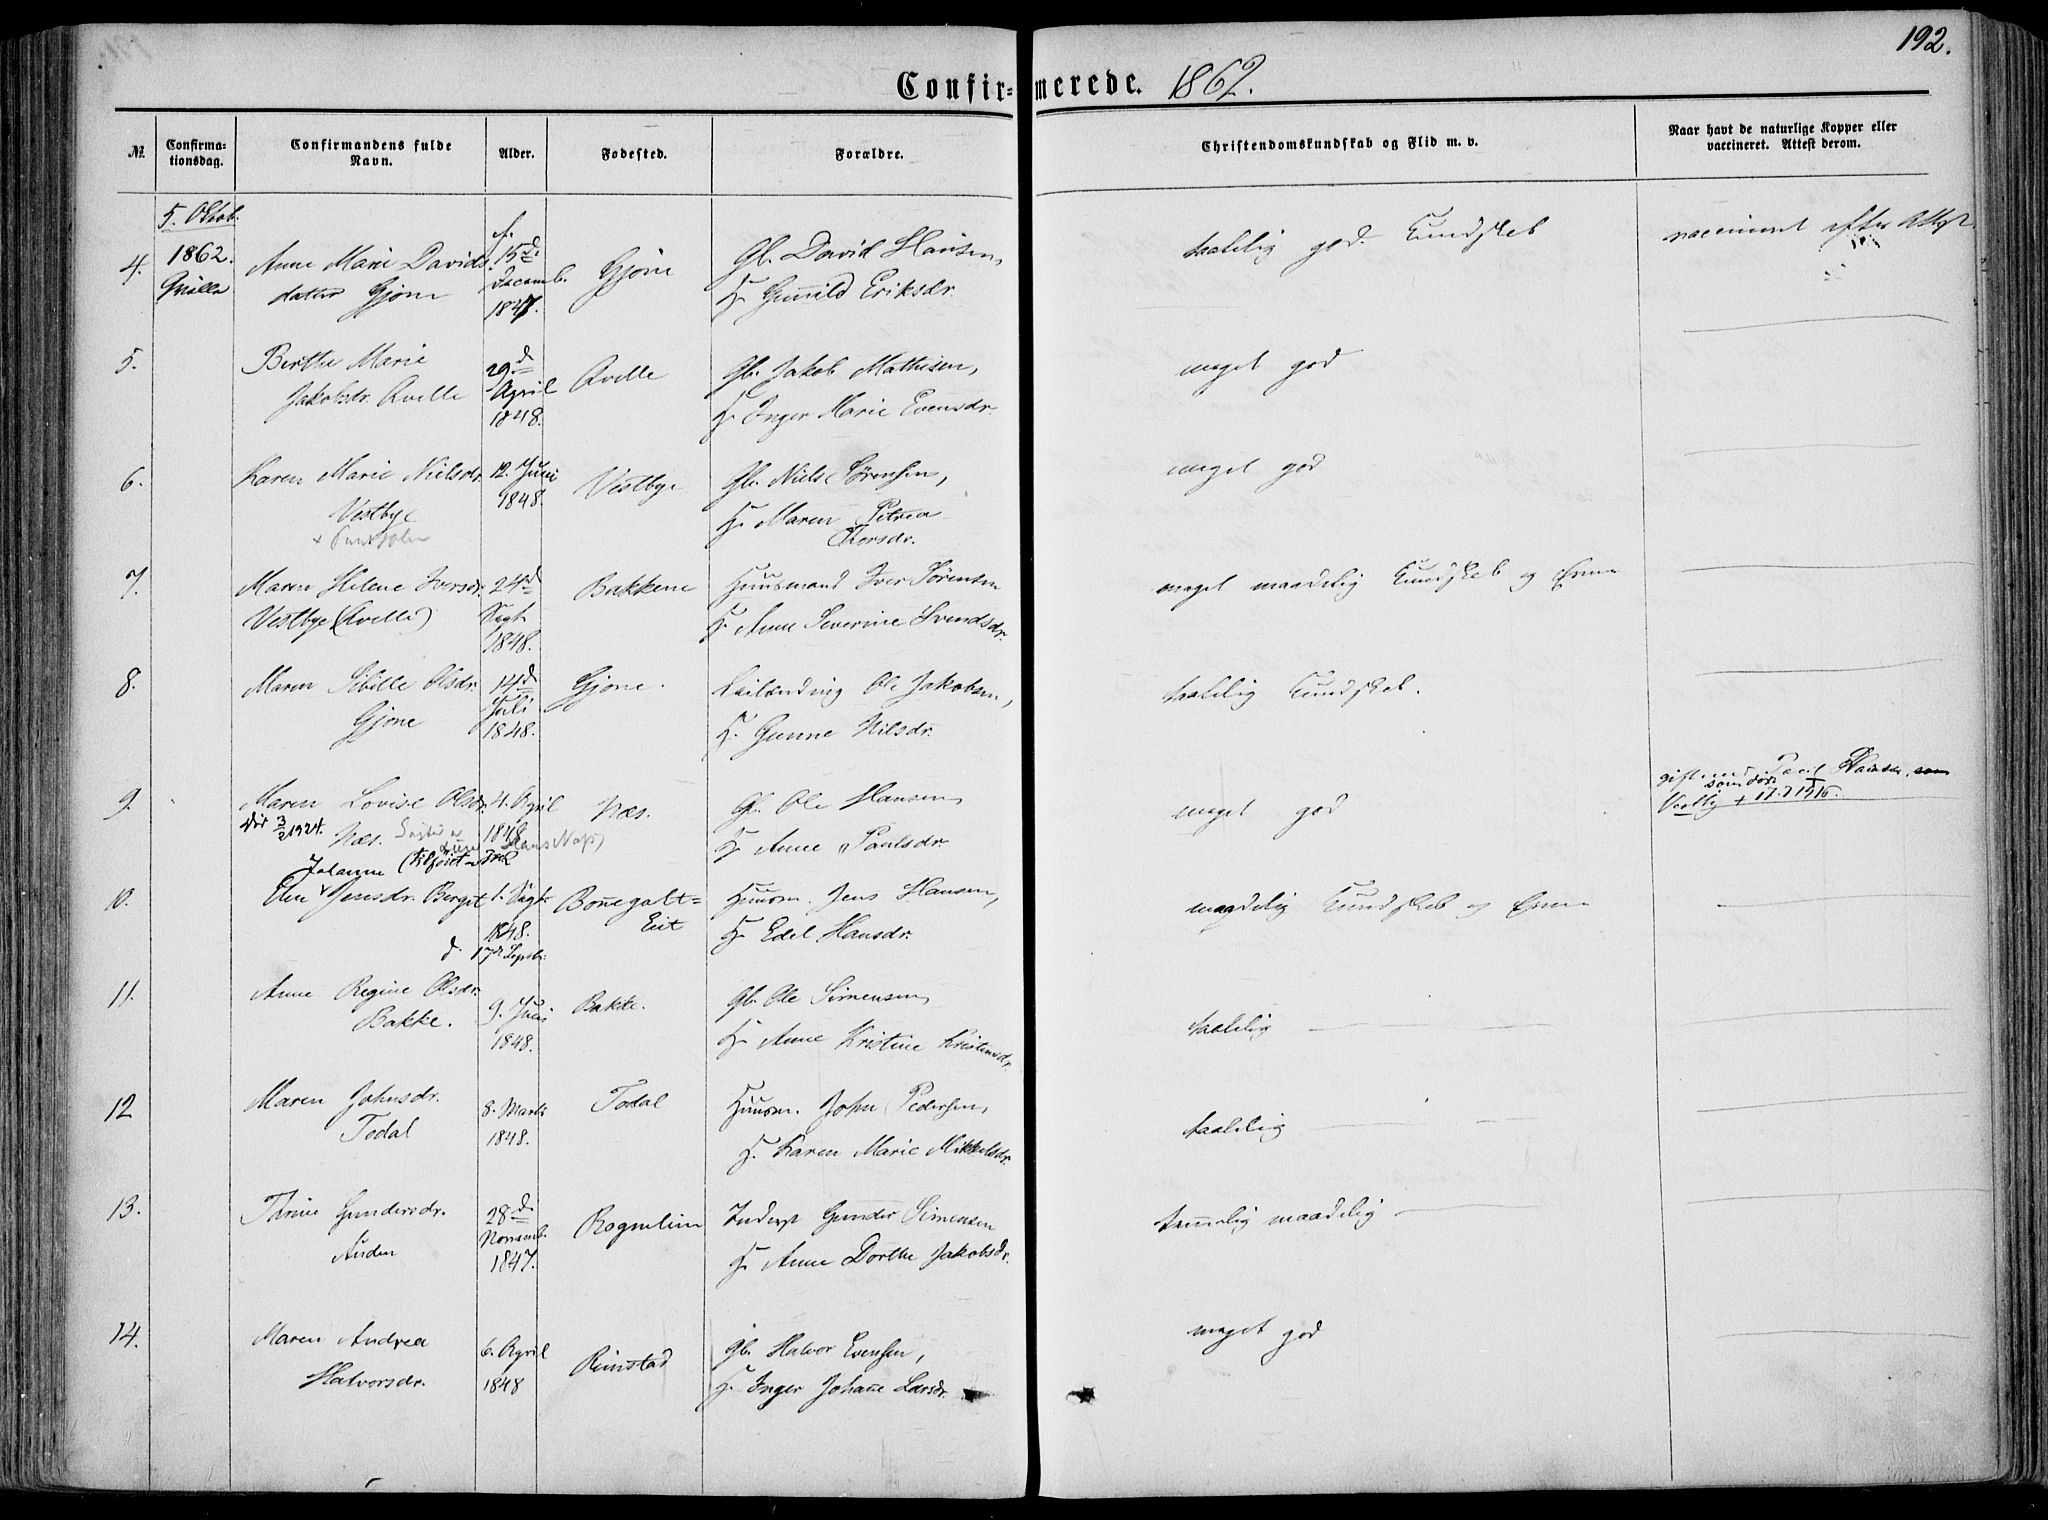 192.
Confirmerede. 1862.
№
Confirmationsdag.
Confirmandens fulde Navn.
Alder.
Fødested.
Forældre.
Christendomskundskab og Flid m. v.
Naar havt de naturlige Kopper eller vaccineret. Attest derom.
5. Oktob.
1862.
4.
Anne Marie Davids-
datter Gjone
f.
15d
Decemb.
1847.
Gjone
Gb. David Hansen,
H. Gunild Eriksdr.
taalelig god. Kundskab
vaccineret efter Attest
5.
Berthe Marie
Jakobsdr. Qvelle
29d
April
1848.
Qvelle
Gb. Jakob Mathisen,
H. Inger Marie Evensdr.
meget god
6.
Karen Marie Nielsdr.
Vestbye
12. Juni
1848.
Vestbye
Gb. Niels Sørensen,
H. Maren Petrea
Thorsdr.
meget god
7.
Maren Helene Iversdr.
Vestbye (Qvelle)
24d
Sept.
1848.
Bakkene
Huusmand Iver Sørensen
H. Anne Severine Svendsdr.
meget maadelig Kundskab og Evne
8.
Maren Sibille Olsdr.
Gjone
14d
Juli
1848.
Gjone.
Leilænding Ole Jakobsen,
H. Gunne Nilsdr.
taalelig Kundskab.
9.
Maren Lovise Olsdr.
død 3/2 1924.
Næs.
4. April
1848
Næs.
Gb. Ole Hansen
H. Anne Paulsdr.
meget god
gift med Paul Hansen, som
som død
Vestby + 17.7 1916.
Johanne (tilføiet
10.
Eline Jensdr. Berget
1. Sept.
1848.
d. 17d Septbr.
Huusm. Jens Hansen,
H. Edel Hansdr.
maadelig Kundskab og Evne
11.
Anne Regine Olsdr.
Bakke.
9. Juni
1848.
Bakke.
Gb. Ole Simensen
H. Anne Kristine Kristensdr.
taalelig
12
Maren Johnsdr.
Todal
8. Marts
1848.
Todal
Huusm. John Pedersen,
H. Karen Marie Mikkelsdr.
taalelig
13.
Thrine Gundersdr.
Auden
28d
Novemb.
1847.
Inderst Gunder Simensen
H. Anne Dorthe Jakobsdr.
temmelig maadelig
14.
Maren Andrea
Halvorsdr.
6. April
1848
Rimstad
Gb. Halvor Evensen,
H. Inger Johanne Larsdr.
meget god